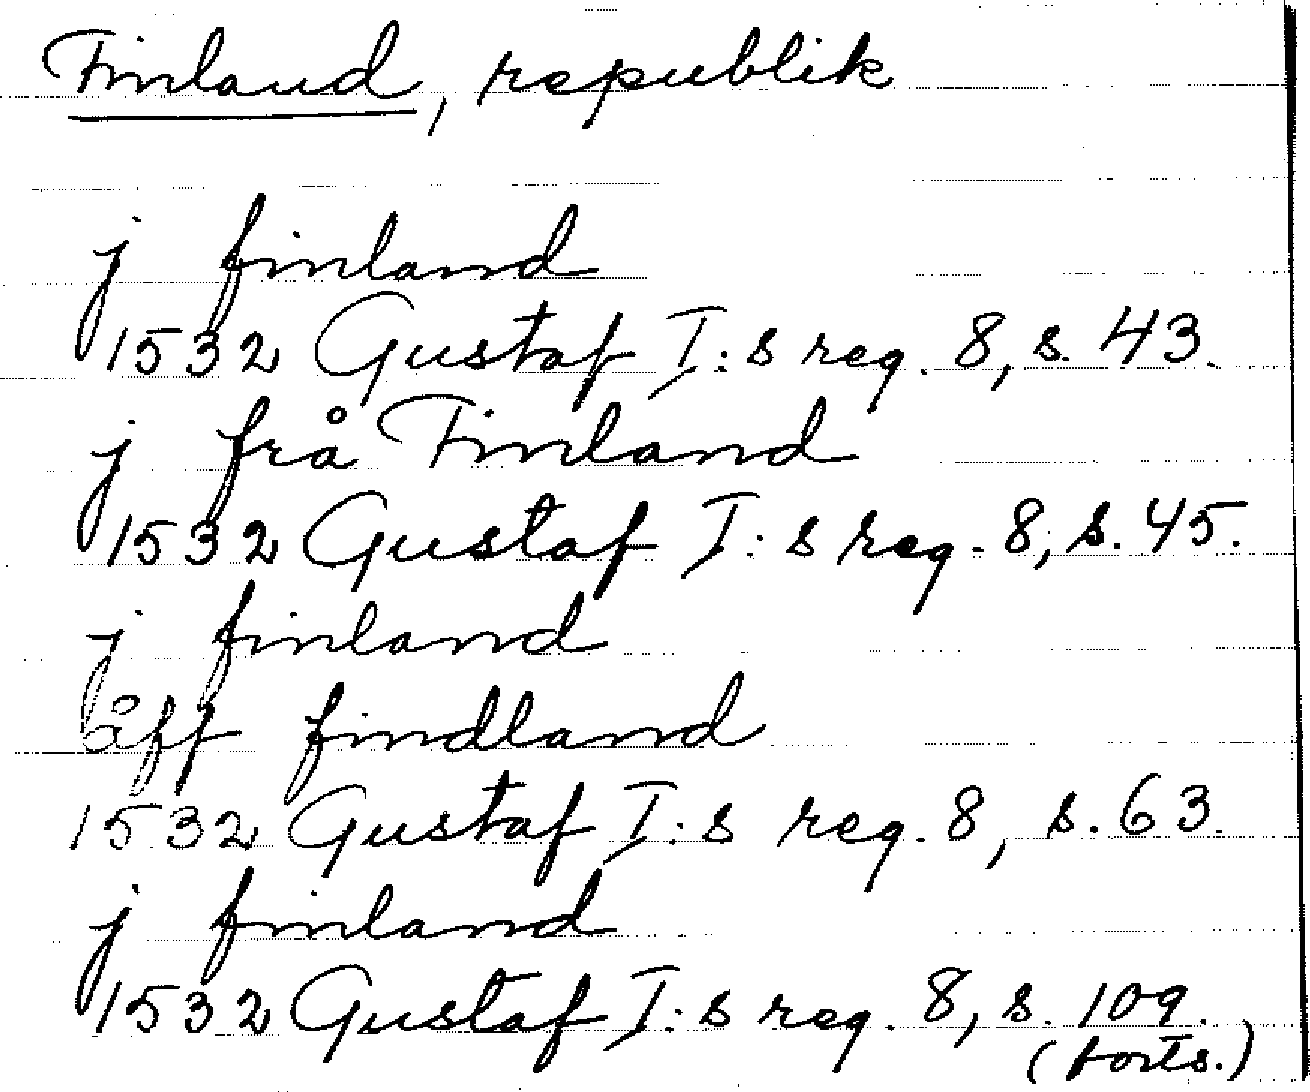 Finland, republik
j finland
1532 Gustaf I:s reg. 8, s. 43.
j frå Finland
1532 Gustaf I:s reg. 8, s. 45.
j finland
åff findland
1532 Gustaf I:s reg. 8, s. 63.
j finland
1532 Gustaf I:s reg. 8, s. 109.
(forts.)